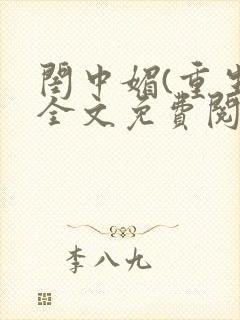 閨中媚(重生
全文免費閱
李八九